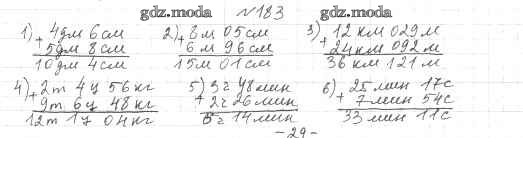 gdz.moda №183 gdz.moda
1) + 4дм 6см 2) + 8м 05см 3) + 12км 029м
5дм 8см 6м 96см 24км 092м
10дм 4см 15м 01см 36км 121м
4) + 2т 4ц 56кг 5) + 3ч 48мин 6) + 25мин 17с
9т 6ц 48кг 2ч 26мин 7мин 54с
12т 1ц 04кг 6ч 14мин 33мин 11с
-29-